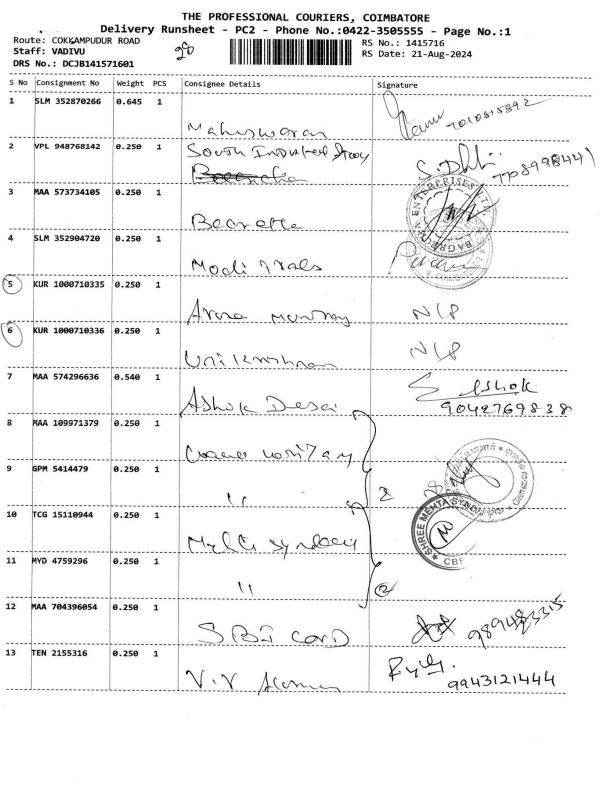 THE PROFESSIONAL COURIERS, COIMBATORE
Delivery Runsheet - PC2 - Phone No.:0422-3505555 - Page No.:1
Route: COKKAMPUDUR ROAD
RS No.: 1415716
Staff: VADIVU
RS Date: 21-Aug-2024
DRS No.: DCJB141571601
S No Consignment No Weight PCS Consignee Details Signature
1 SLM 352870266 0.645 1
Maheswaran 7010815392
2 VPL 948768142 0.250 1
South
3 MAA 573734105 0.250 1
ENTERPRISES
4 SLM 352904720 0.250 1
Modi
5 KUR 1000710335 0.250 1
N/P
6 KUR 1000710336 0.250 1
Unikrishnan N/P
7 MAA 574296636 0.540 1
Ashok Desai Ashok
9042769838
8 MAA 109971379 0.250 1
9 GPM 5414479 0.250 1
" 2
10 TCG 15110944 0.250 1
SHREE MEHTA SYNDICATE
CBE
11 MYD 4759296 0.250 1
" 2
12 MAA 704396054 0.250 1
SBI Card
13 TEN 2155316 0.250 1
V.V
9943121444